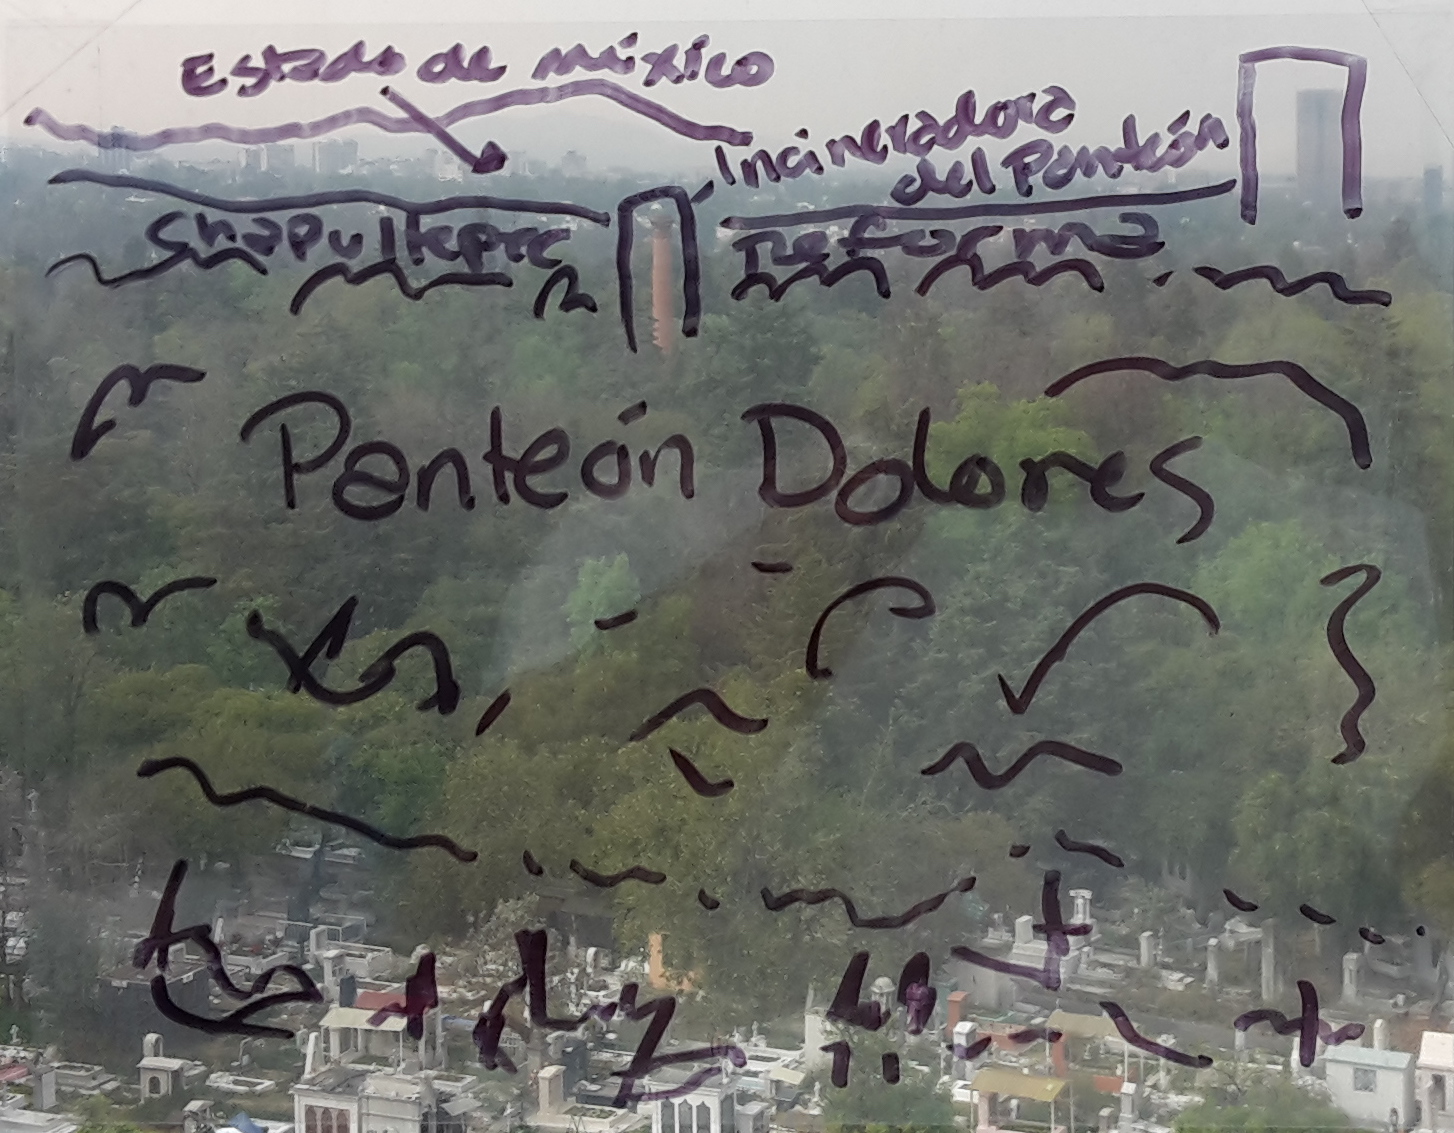 Estado de méxico
Incineradora
del Panteón
Chapultepec
Reforma
Panteón Dolores